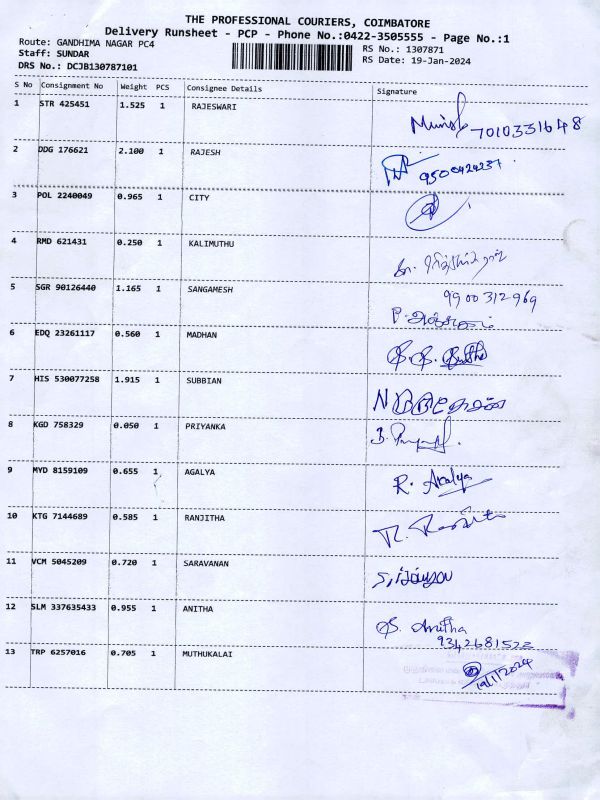 THE PROFESSIONAL COURIERS, COIMBATORE
Delivery Runsheet - PCP - Phone No.:0422-3505555 - Page No.:1
Route: GANDHIMA NAGAR PC4 RS No.: 1307871
Staff: SUNDAR RS Date: 19-Jan-2024
DRS No.: DCJB130787101
S No Consignment No Weight PCS Consignee Details Signature
1 STR 425451 1.525 1 RAJESWARI
7010331648
2 DDG 176621 2.100 1 RAJESH
9500424237
3 POL 2240049 0.965 1 CITY
4 RMD 621431 0.250 1 KALIMUTHU
5 SGR 90126440 1.165 1 SANGAMESH
9900312969
6 EDQ 23261117 0.560 1 MADHAN
7 HIS 530077258 1.915 1 SUBBIAN
8 KGD 758329 0.050 1 PRIYANKA
9 MYD 8159109 0.655 1 AGALYA
R. Agalya
10 KTG 7144689 0.585 1 RANJITHA
11 VCM 5045209 0.720 1 SARAVANAN
12 SLM 337635433 0.955 1 ANITHA
S. Anitha
9342681522
13 TRP 6257016 0.705 1 MUTHUKALAI
19/1/2024